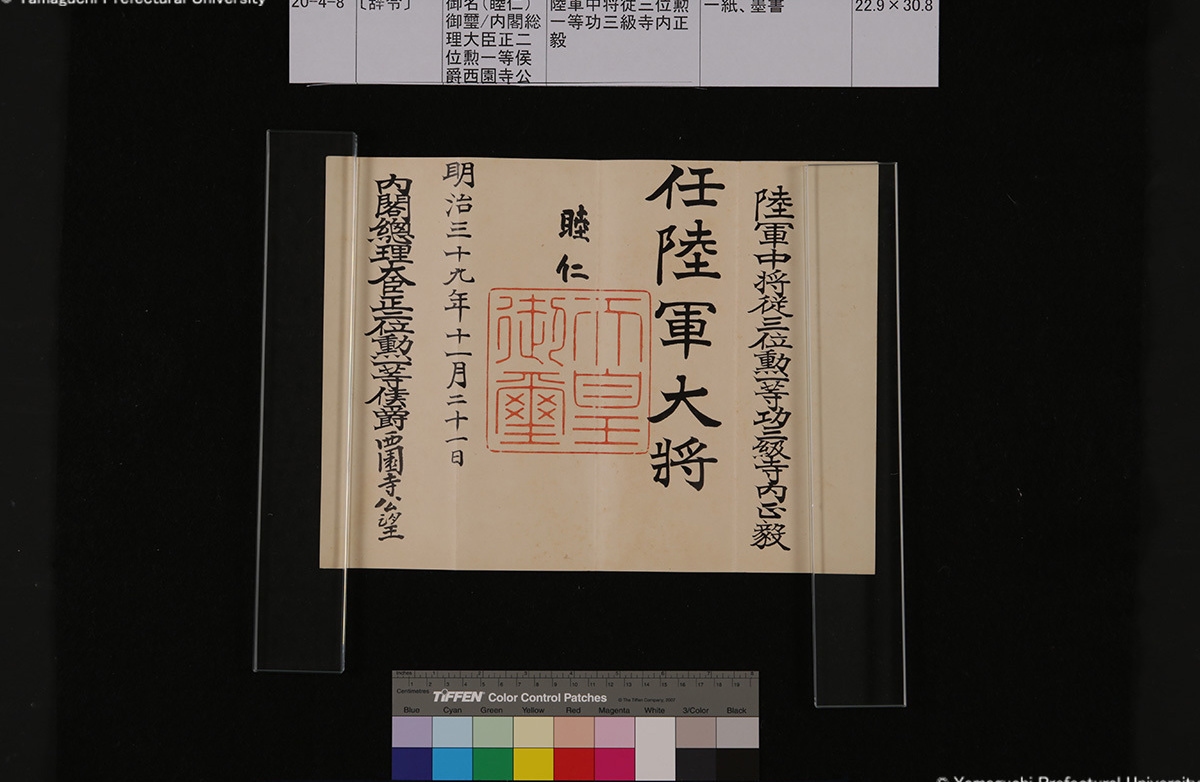 © Yamaguchi Prefectural University
20-4-8
〔辞令〕
御名(睦仁)
御璽/内閣総
理大臣正二
位勲一等侯
爵西園寺公
陸軍中将従三位勲
一等功三級寺内正
毅
一紙、墨書
22.9×30.8
陸軍中将従三位勲一等功三級寺内正毅
任陸軍大將
睦仁
天皇
御璽
明治三十九年十一月二十一日
內閣總理大臣正二位勲一等侯爵西園寺公望
Inches
Centimetres
TIFFEN Color Control Patches
© The Tiffen Company, 2007
Blue Cyan Green Yellow Red Magenta White 3/Color Black
© Yamaguchi Prefectural University